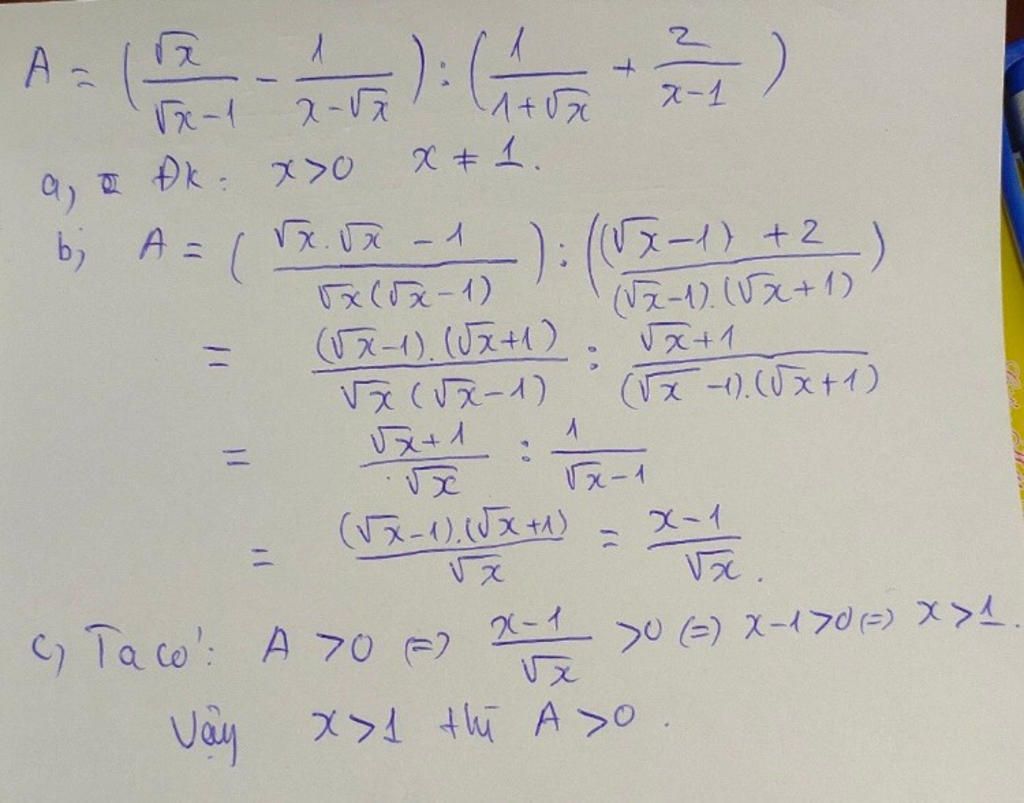 A = (√x/(√x-1) - 1/(x-√x)) : (1/(1+√x) + 2/(x-1))
a, Đk: x>0 x ≠ 1.
b, A = ((√x.√x - 1)/(√x(√x-1))) : (((√x-1) + 2)/((√x-1).(√x+1)))
= ((√x-1).(√x+1))/(√x(√x-1)) : (√x+1)/((√x-1).(√x+1))
= (√x+1)/√x : 1/(√x-1)
= ((√x-1).(√x+1))/√x = (x-1)/√x.
c, Ta có: A >0 (=) (x-1)/√x >0 (=) x-1>0 (=) x>1.
Vậy x>1 thì A>0.